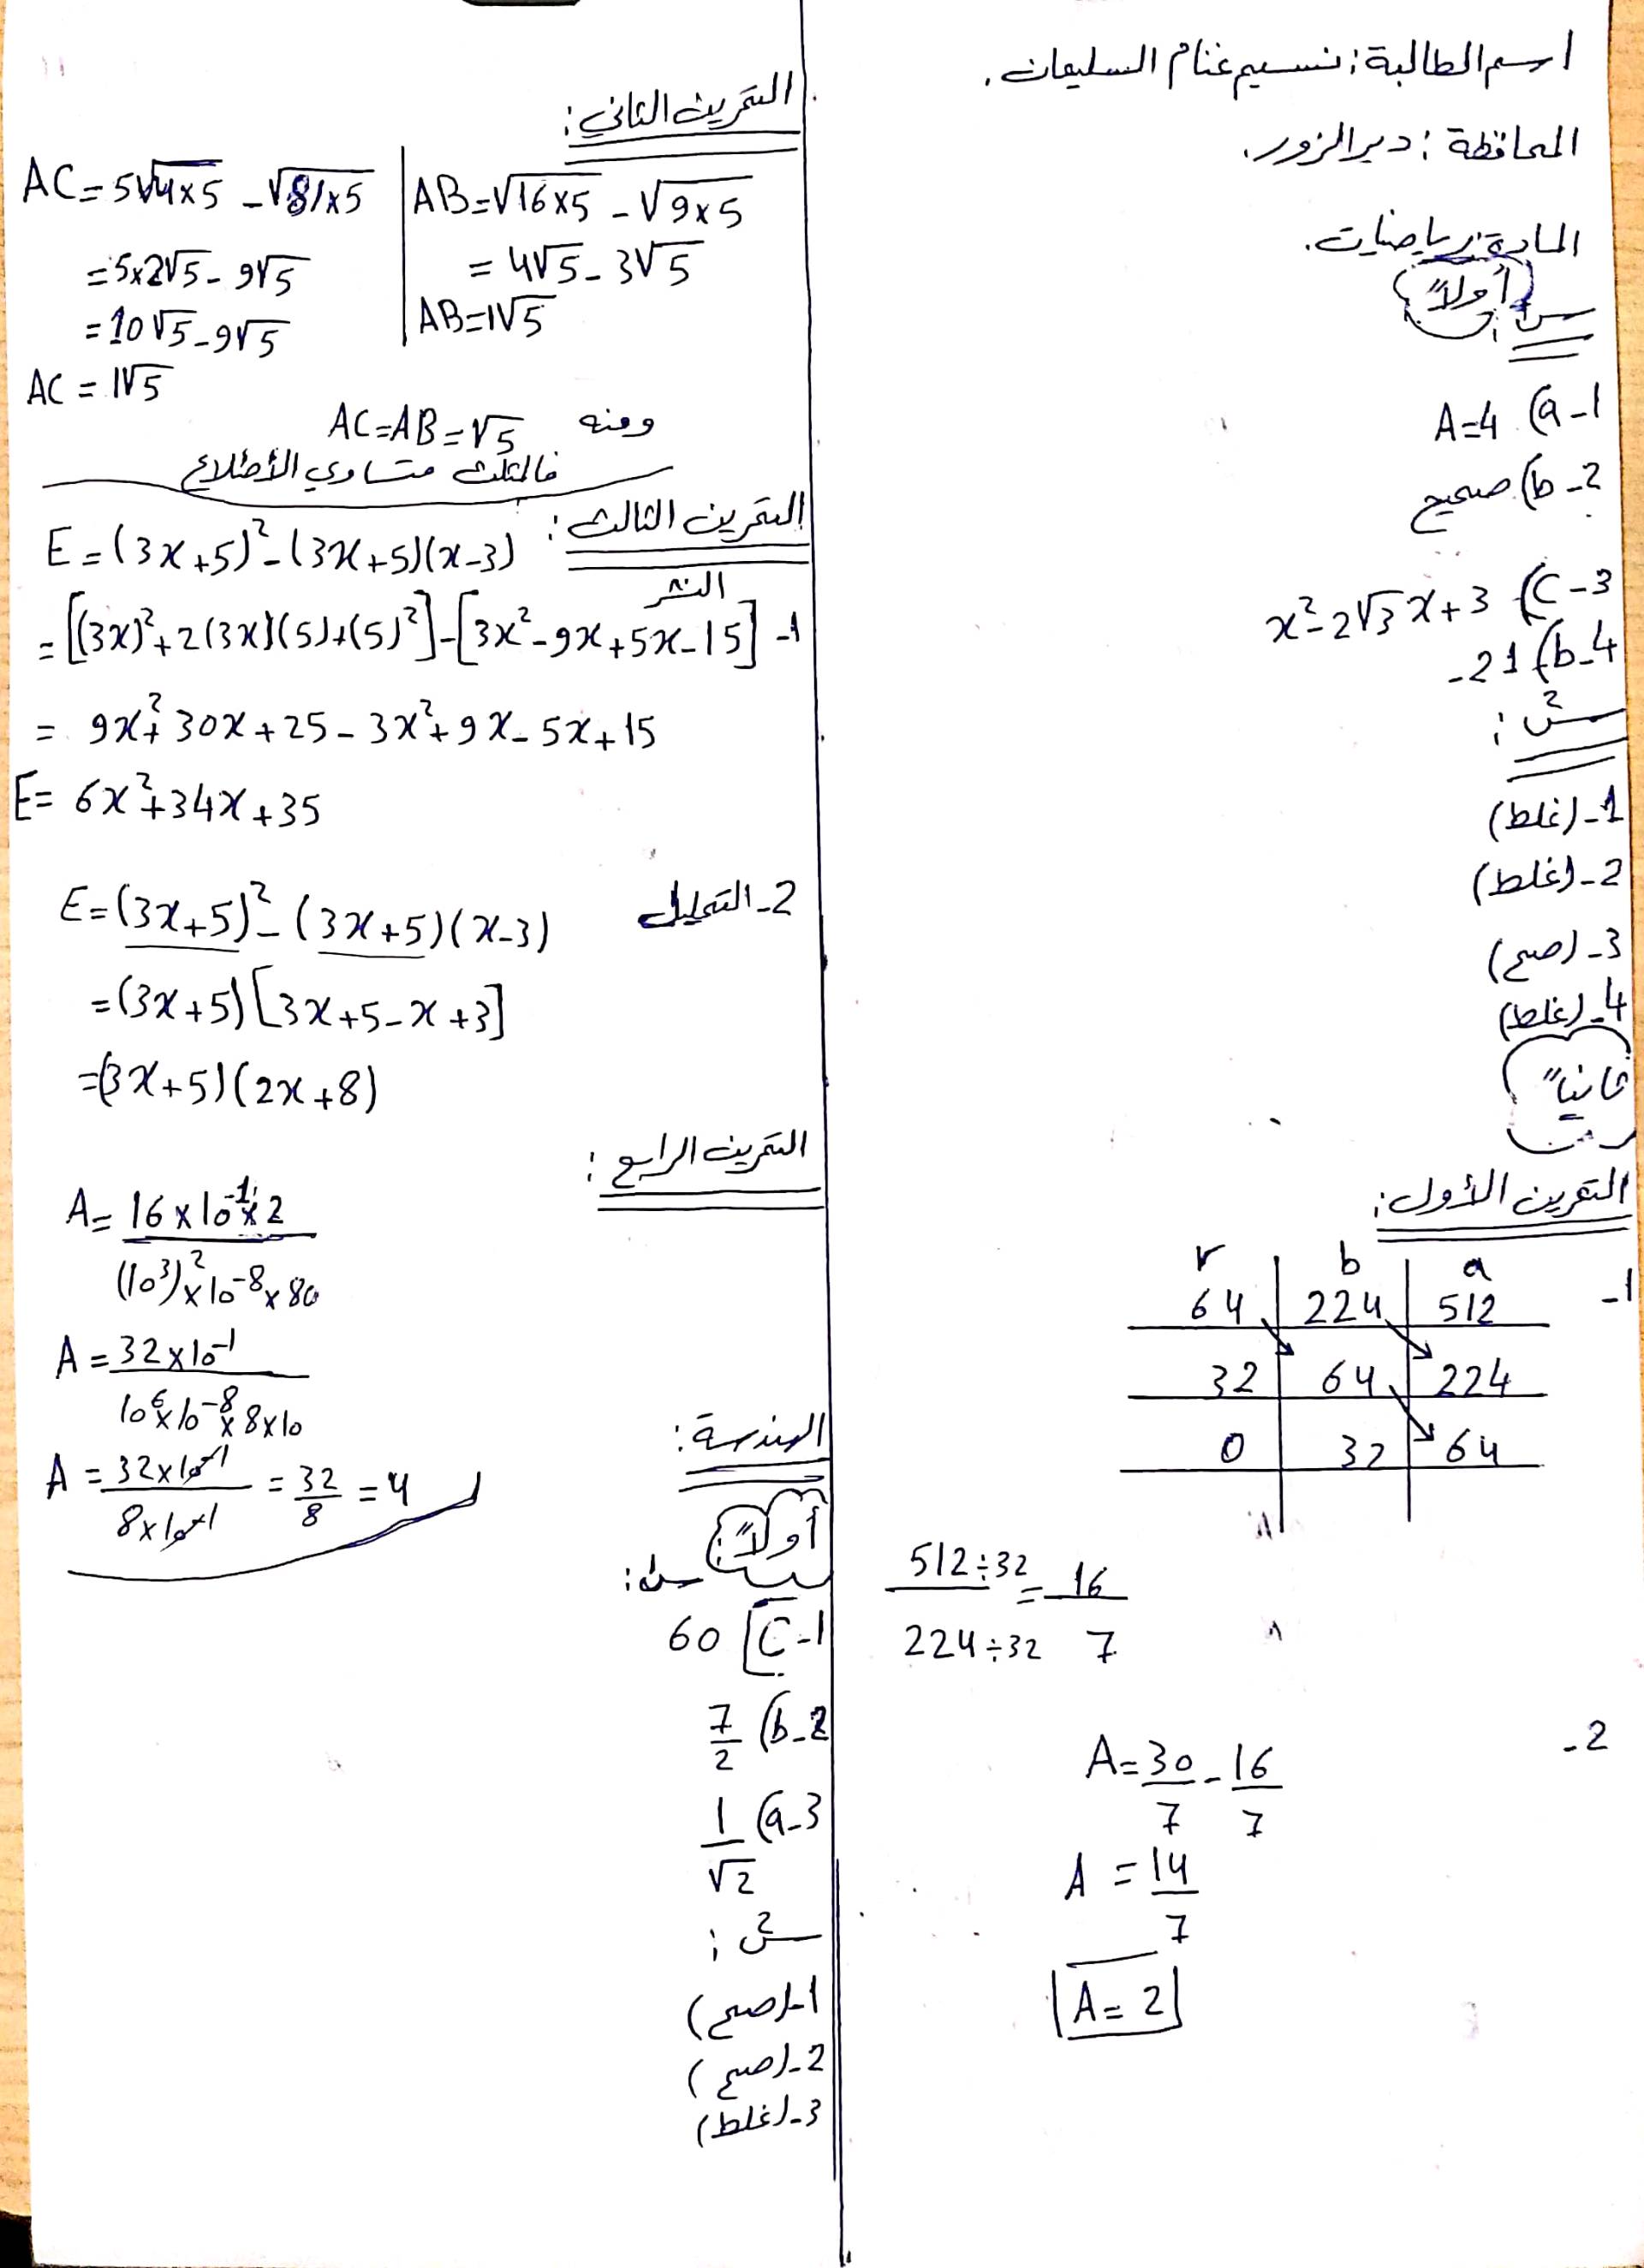 اسم الطالبة: نسيم غنام السليمان.
المحافظة: ديرالزور.
المادة: رياضيات.
أولاً
س1:
1- a) A=4
2- b) صحيح
3- c) x²-2√3x+3
4- b) -21
س2:
1- (غلط)
2- (غلط)
3- (صح)
4- (غلط)
ثانياً
التمرين الأول:
1-
a b r
512 224 64
224 64 32
64 32 0
512÷32 / 224÷32 = 16/7
2-
A = 30/7 - 16/7
A = 14/7
A = 2
التمرين الثاني:
AB=√16×5 - √9×5
= 4√5 - 3√5
AB=1√5
AC=5√4×5 - √81×5
=5×2√5 - 9√5
=10√5 - 9√5
AC = 1√5
ومنه AC=AB=√5
فالمثلث متساوي الأضلاع
التمرين الثالث:
E=(3x+5)²-(3x+5)(x-3)
النشر
1- =[(3x)²+2(3x)(5)+(5)²]-[3x²-9x+5x-15]
= 9x²+30x+25-3x²+9x-5x+15
E= 6x²+34x+35
2- التحليل
E=(3x+5)²-(3x+5)(x-3)
=(3x+5)[3x+5-x+3]
=(3x+5)(2x+8)
التمرين الرابع:
A= 16×10⁻¹×2 / (10³)²×10⁻⁸×80
A = 32×10⁻¹ / 10⁶×10⁻⁸×8×10
A = 32×10⁻¹ / 8×10⁻¹ = 32/8 = 4
الهندسة:
أولاً:
س1:
1- c) 60
2- b) 7/2
3- a) 1/√2
س2:
1- (صح)
2- (صح)
3- (غلط)